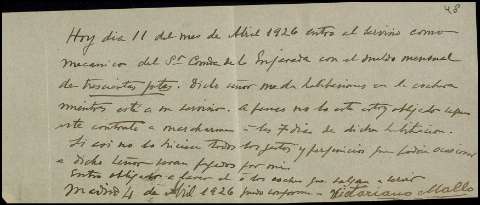 48
Hoy dia 11 del mes de Abril 1926 entro al servicio como
mecanico del Sr Conde de la Enjarada con el sueldo mensual
de trescientas ptas. Dicho señor me da habitaciones en la cochera
mientras este a su servicio. estoy obligado segun
este contrato a marcharme a los 7 dias de dicha habitacion.
Si asi no lo hiciese todos los gastos y perjuicios que podria ocasionar
a dicho Señor seran pagados por mi
Entro obligado a los coches que salgan a
Madrid 4 de Abril 1926 conforme Victoriano Mallo